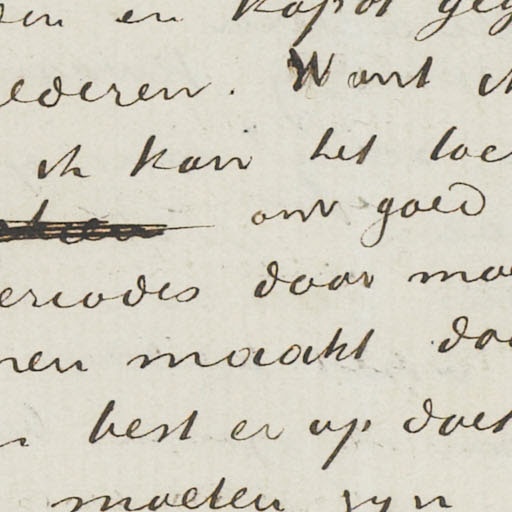 en kapot
ederen. Want ik
ik kan het toe
om goed
eriodes door ma
nen maakt do
n best er op doet
moeten zyn